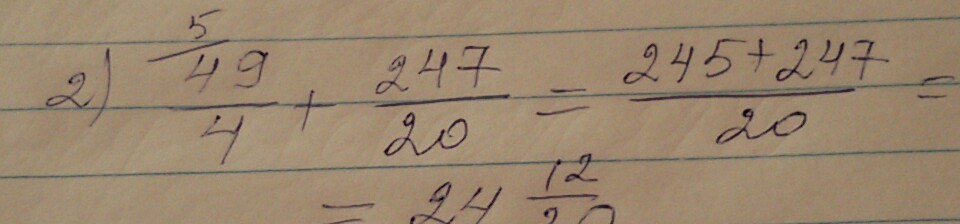 2) 5/ 49/4 + 247/20 = 245+247/20 =
= 24 12/20